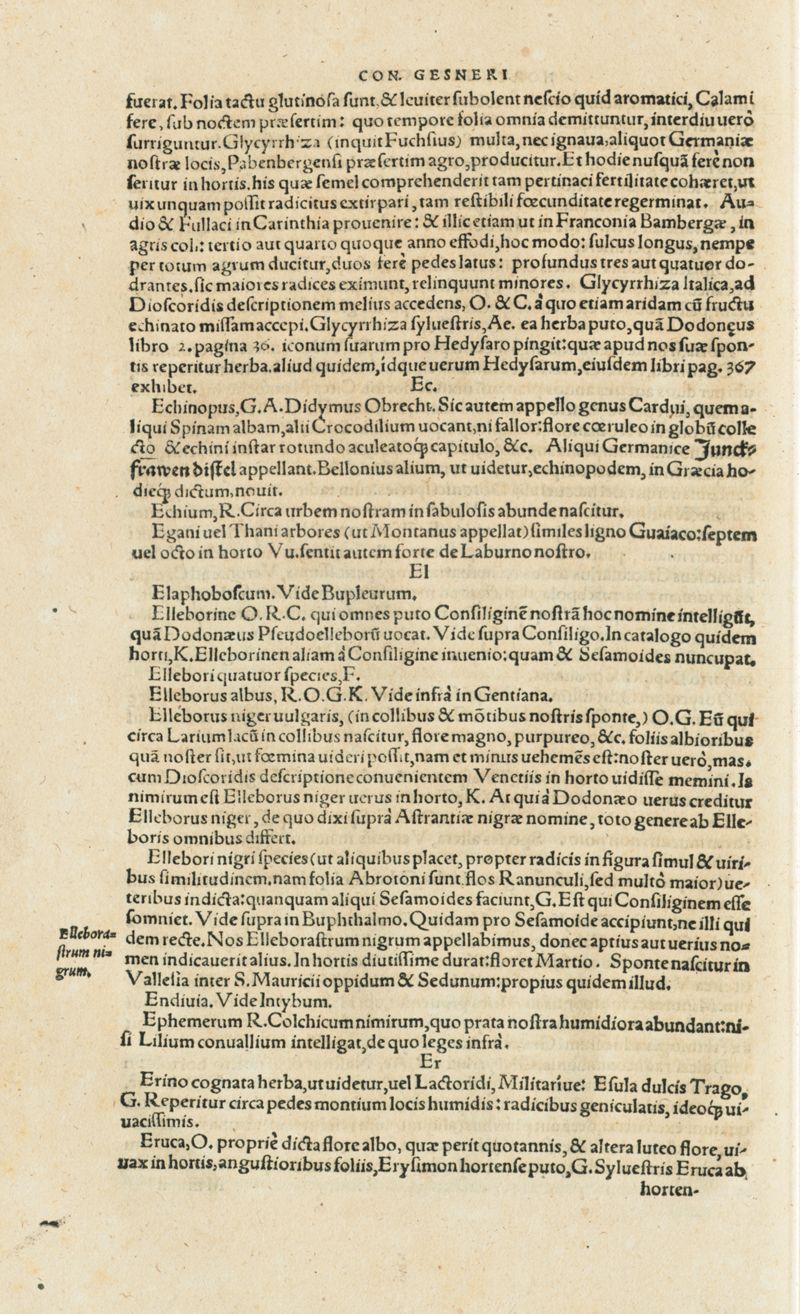 CON. GESNERI
fuerat. Folia tactu glutinosa sunt. & leuiter subolent nescio quid aromatici, Calami
fere, sub noctem præsertim: quo tempore folia omnia demittuntur, interdiu uerò
surriguntur. Glycyrrhiza (inquit Fuchsius) multa, nec ignaua, aliquot Germaniæ
nostræ locis, Pabenbergensi præsertim agro, producitur. Et hodie nusquã ferè non
seritur in hortis. his quæ semel comprehenderit tam pertinaci fertilitate cohæret, ut
uix unquam possit radicitus extirpari, tam restibili fœcunditate regerminat. Au-
dio & Fullaci in Carinthia prouenire: & illic etiam ut in Franconia Bambergæ, in
agris coli: tertio aut quarto quoque anno effodi, hoc modo: sulcus longus, nempe
per totum agrum ducitur, duos ferè pedes latus: profundus tres aut quatuor do-
drantes. sic maiores radices eximunt, relinquunt minores. Glycyrrhiza Italica, ad
Dioscoridis descriptionem melius accedens, O. & C. à quo etiam aridam cũ fructu
echinato missam accepi. Glycyrrhiza syluestris, Ae. ea herba puto, quã Dodonęus
libro 2. pagina 36. iconum suarum pro Hedysaro pingit: quæ apud nos suæ spon-
tis reperitur herba. aliud quidem, idque uerum Hedysarum, eiusdem libri pag. 367
exhibet.
Ec.
Echinopus, G. A. Didymus Obrecht. Sic autem appello genus Cardui, quem a-
liqui Spinam albam, alii Crocodilium uocant, ni fallor: flore cœruleo in globũ colle
cto & echini instar rotundo aculeatoq́; capitulo, &c. Aliqui Germanice Junckͤ
frawen distel appellant. Bellonius alium, ut uidetur, echinopodem, in Græcia ho-
dieq́; dictum, nouit.
Echium, R. Circa urbem nostram in sabulosis abunde nascitur.
Egani uel Thani arbores (ut Montanus appellat) similes ligno Guaiaco: septem
uel octo in horto Vu. sentit autem forte de Laburno nostro.
El
Elaphoboscum. Vide Bupleurum.
Elleborine O. R. C. qui omnes puto Consiliginẽ nostrã hoc nomine intelligũt,
quã Dodonæus Pseudoelleborũ uocat. Vide supra Consiligo. In catalogo quidem
horti, K. Elleborinen aliam à Consiligine inuenio: quam & Sesamoides nuncupat.
Ellebori quatuor species, F.
Elleborus albus, R. O. G. K. Vide infrà in Gentiana.
Elleborus niger uulgaris, (in collibus & mõtibus nostris sponte,) O. G. Eũ qui
circa Larium lacũ in collibus nascitur, flore magno, purpureo, &c. foliis albioribus
quã noster sit, ut fœmina uideri possit, nam et minus uehemẽs est: noster uerò, mas.
cum Dioscoridis descriptione conuenientem Venetiis in horto uidisse memini. Is
nimirum est Elleborus niger uerus in horto, K. At qui à Dodonæo uerus creditur
Elleborus niger, de quo dixi suprà Astrantiæ nigræ nomine, toto genere ab Elle-
boris omnibus differt.
Ellebori nigri species (ut aliquibus placet, propter radicis in figura simul & uiri-
bus similitudinem. nam folia Abrotoni sunt. flos Ranunculi, sed multò maior) ue-
teribus indicta: quanquam aliqui Sesamoides faciunt, G. Est qui Consiliginem esse
somniet. Vide supra in Buphthalmo. Quidam pro Sesamoide accipiunt, ne illi qui
Ellebora-
strum ni-
grum.
dem recte. Nos Elleborastrum nigrum appellabimus, donec aptius aut uerius no-
men indicauerit alius. In hortis diutissime durat: floret Martio. Sponte nascitur in
Vallesia inter S. Mauricii oppidum & Sedunum: propius quidem illud.
Endiuia. Vide Intybum.
Ephemerum R. Colchicum nimirum, quo prata nostra humidiora abundant: ni-
si Lilium conuallium intelligat, de quo leges infrà.
Er
Erino cognata herba, ut uidetur, uel Lactoridi, Militariue: Esula dulcis Trago,
G. Reperitur circa pedes montium locis humidis: radicibus geniculatis, ideoq́; ui-
uacissimis.
Eruca, O. propriè dicta flore albo, quæ perit quotannis, & altera luteo flore, ui-
uax in hortis, angustioribus foliis, Erysimon hortense puto, G. Syluestris Eruca ab
horten-